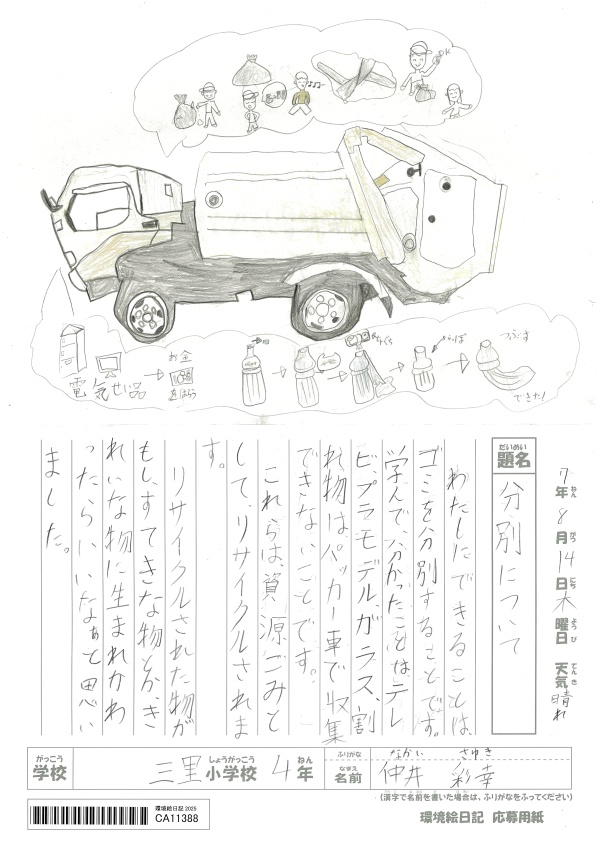 OK
お金
をはらう
電気せい品
つぶす
できた!
7年8月14日木曜日 天気晴れ
ねん がつ にち ようび てんき
だいめい
題名
分別について
わたしにできることは、
ゴミを分別することです。
学んで、分かったことは、テレ
ビ、プラモデル、ガラス、割
れ物は、パッカー車で収集
できないことです。
これらは、資源ごみと
して、リサイクルされま
す。
リサイクルされた物が
もし、すてきな物とか、き
れいな物に生まれかわ
ったらいいなぁと思い
ました。
がっこう
学校
三里小学校 4年
しょうがっこう ねん
ふりがな
なかい さゆき
なまえ
名前
仲井 彩幸
(漢字で名前を書いた場合は、ふりがなをふってください)
環境絵日記 2025
CA11388
環境絵日記 応募用紙